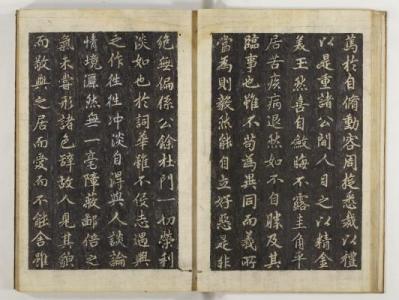 篤於自脩動容周旋悉裁以禮
以是重諸公間人目之以精金
美玉然喜自斂晦不露圭角平
居苦疾病退然如不自勝及其
臨事也雖不苟為異同而義所
當為則毅然能自立好惡是非
絕無偏係公餘杜門一切榮利
淡如也於詞華雖不侵志遇興
之作往往沖淡自得與人談論
情境灑然無一毫障蔽鄙倍之
氣未嘗形諸色辭故人見其貌
而敬與之居而愛而不能舍雖